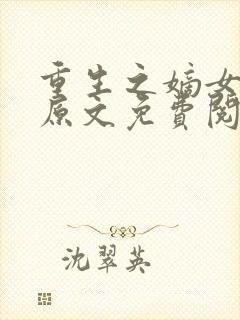 重生之嫡女
原文免費閱
沈翠英